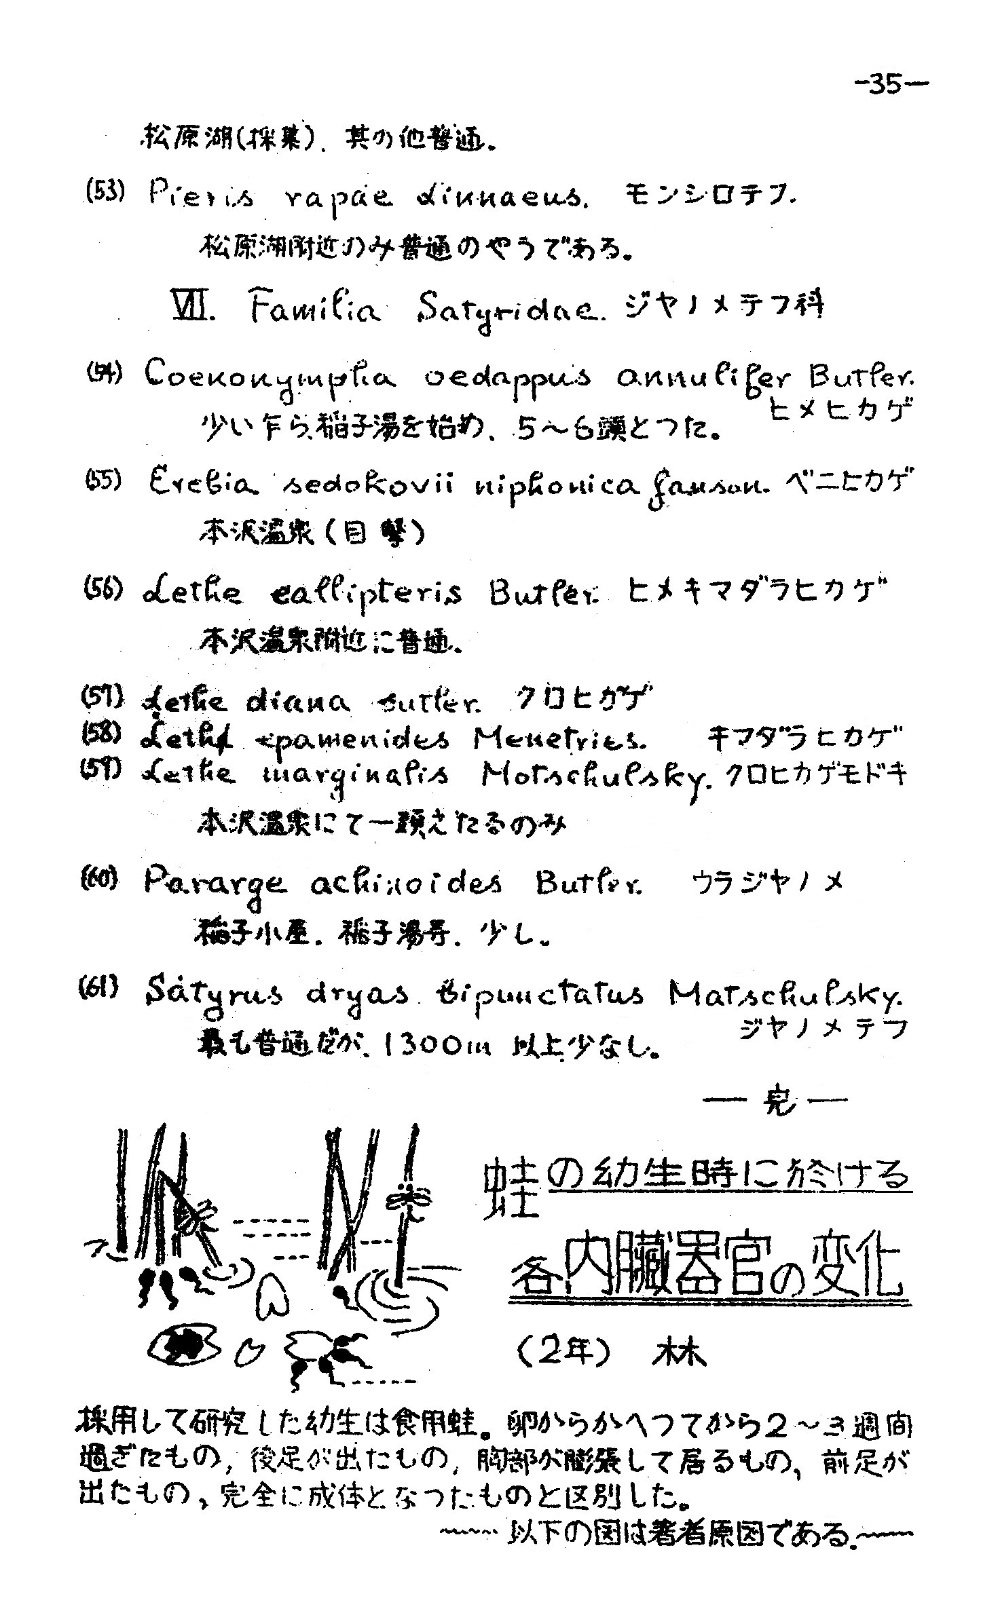 -35-
松原湖(採集)、其の他普通。
(53) Pieris rapae Linnaeus. モンシロテフ.
松原湖附近のみ普通のやうである。
VII. Familia Satyridae. ジヤノメテフ科
(54) Coenonympha oedappus annulifer Butler.
ヒメヒカゲ
少い乍ら、稲子湯を始め、5～6頭とつた。
(55) Erebia sedokovii niphonica Janson. ベニヒカゲ
本沢温泉(目撃)
(56) Lethe callipteris Butler. ヒメキマダラヒカゲ
本沢温泉附近に普通。
(57) Lethe diana Butler. クロヒカゲ
(58) Lethe epamenides Menetries. キマダラヒカゲ
(59) Lethe marginalis Motschulsky. クロヒカゲモドキ
本沢温泉にて一頭えたるのみ
(60) Pararge achinoides Butler. ウラジヤノメ
稲子小屋、稲子湯等、少し。
(61) Satyrus dryas bipunctatus Matschulsky.
ジヤノメテフ
最も普通だが、1300m 以上少なし。
— 完 —
蛙の幼生時に於ける
各内臓器官の変化
(2年) 林
採用して研究した幼生は食用蛙。卵からかへつてから2～3週間
過ぎたもの, 後足が出たもの, 胸部が膨張して居るもの、前足が
出たもの、完全に成体となつたものと区別した。
～～～以下の図は著者原図である.～～～